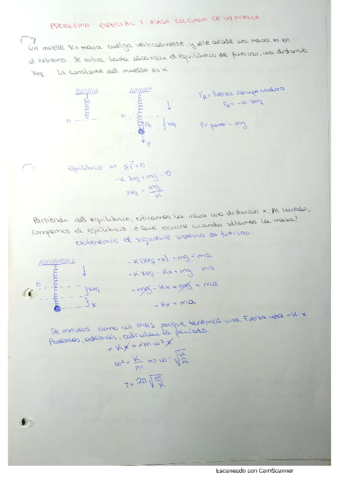 PROBLEMA ESPECIAL : MASA COLGADA DE UN MUELLE
Un muelle sin masa cuelga verticalmente, y se le añade una masa m en
el extremo. Se estira hasta alcanzar el equilibrio de fuerzas, una distancia
xeq. La constante del muelle es K
FR = Fuerza recuperadora
FR = -K xeq
P = peso = mg
Equilibrio → ΣF = 0
-K xeq = mg
xeq = mg/K
Partiendo del equilibrio, estiramos la masa una distancia x. Al hacerlo,
rompemos el equilibrio ¿Qué ocurre cuando soltamos la masa?
Obtenemos el siguiente sistema de fuerzas
-K(xeq+x) = mg = ma
-K xeq - Kx = mg ma
-mg - Kx = mg = ma
-Kx = ma
Se moverá como un MAS porque tenemos una Fuerza neta = -K·x
Podemos, además, calcular el periodo
-K x = -m ω² x
ω² = K/m → ω = √K/m
T = 2π √m/K
Escaneado con CamScanner